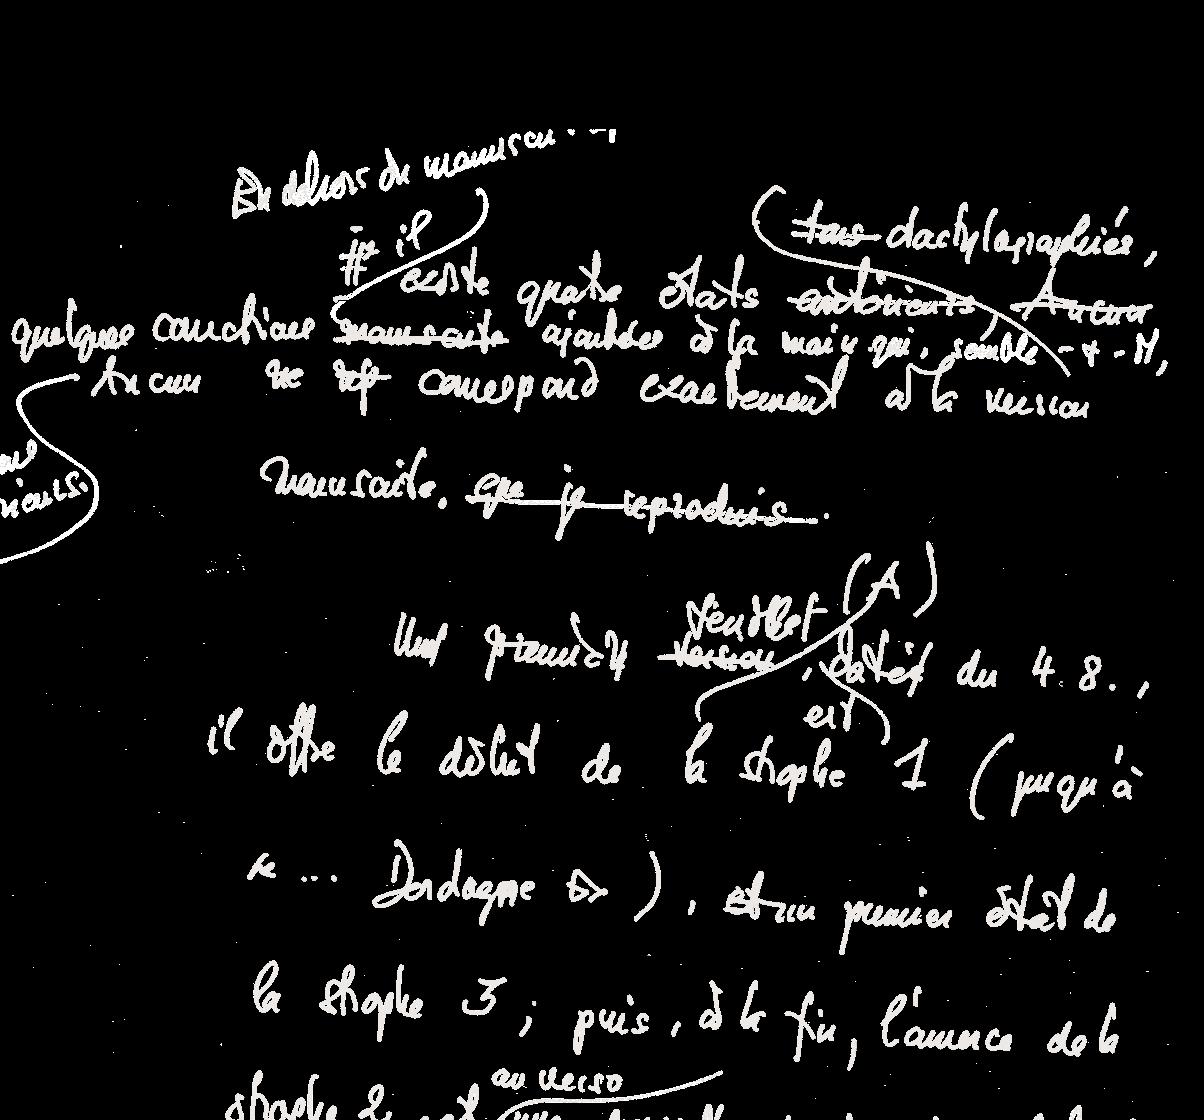 En dehors du manuscrit
il
tous dactylographiés,
existe quatre états antérieurs, Aucun
quelques corrections manuscrites ajoutées à la main qui, semble-t-il,
Aucun ne correspond exactement à la version
manuscrite. que je reproduis.
(A)
feuillet
Une première version, datée du 4.8.,
est
il offre le début de la strophe 1 (jusqu'à
« ... Dordogne »), et un premier état de
la strophe 3 ; puis, à la fin, l'amorce de la
au verso
strophe 2